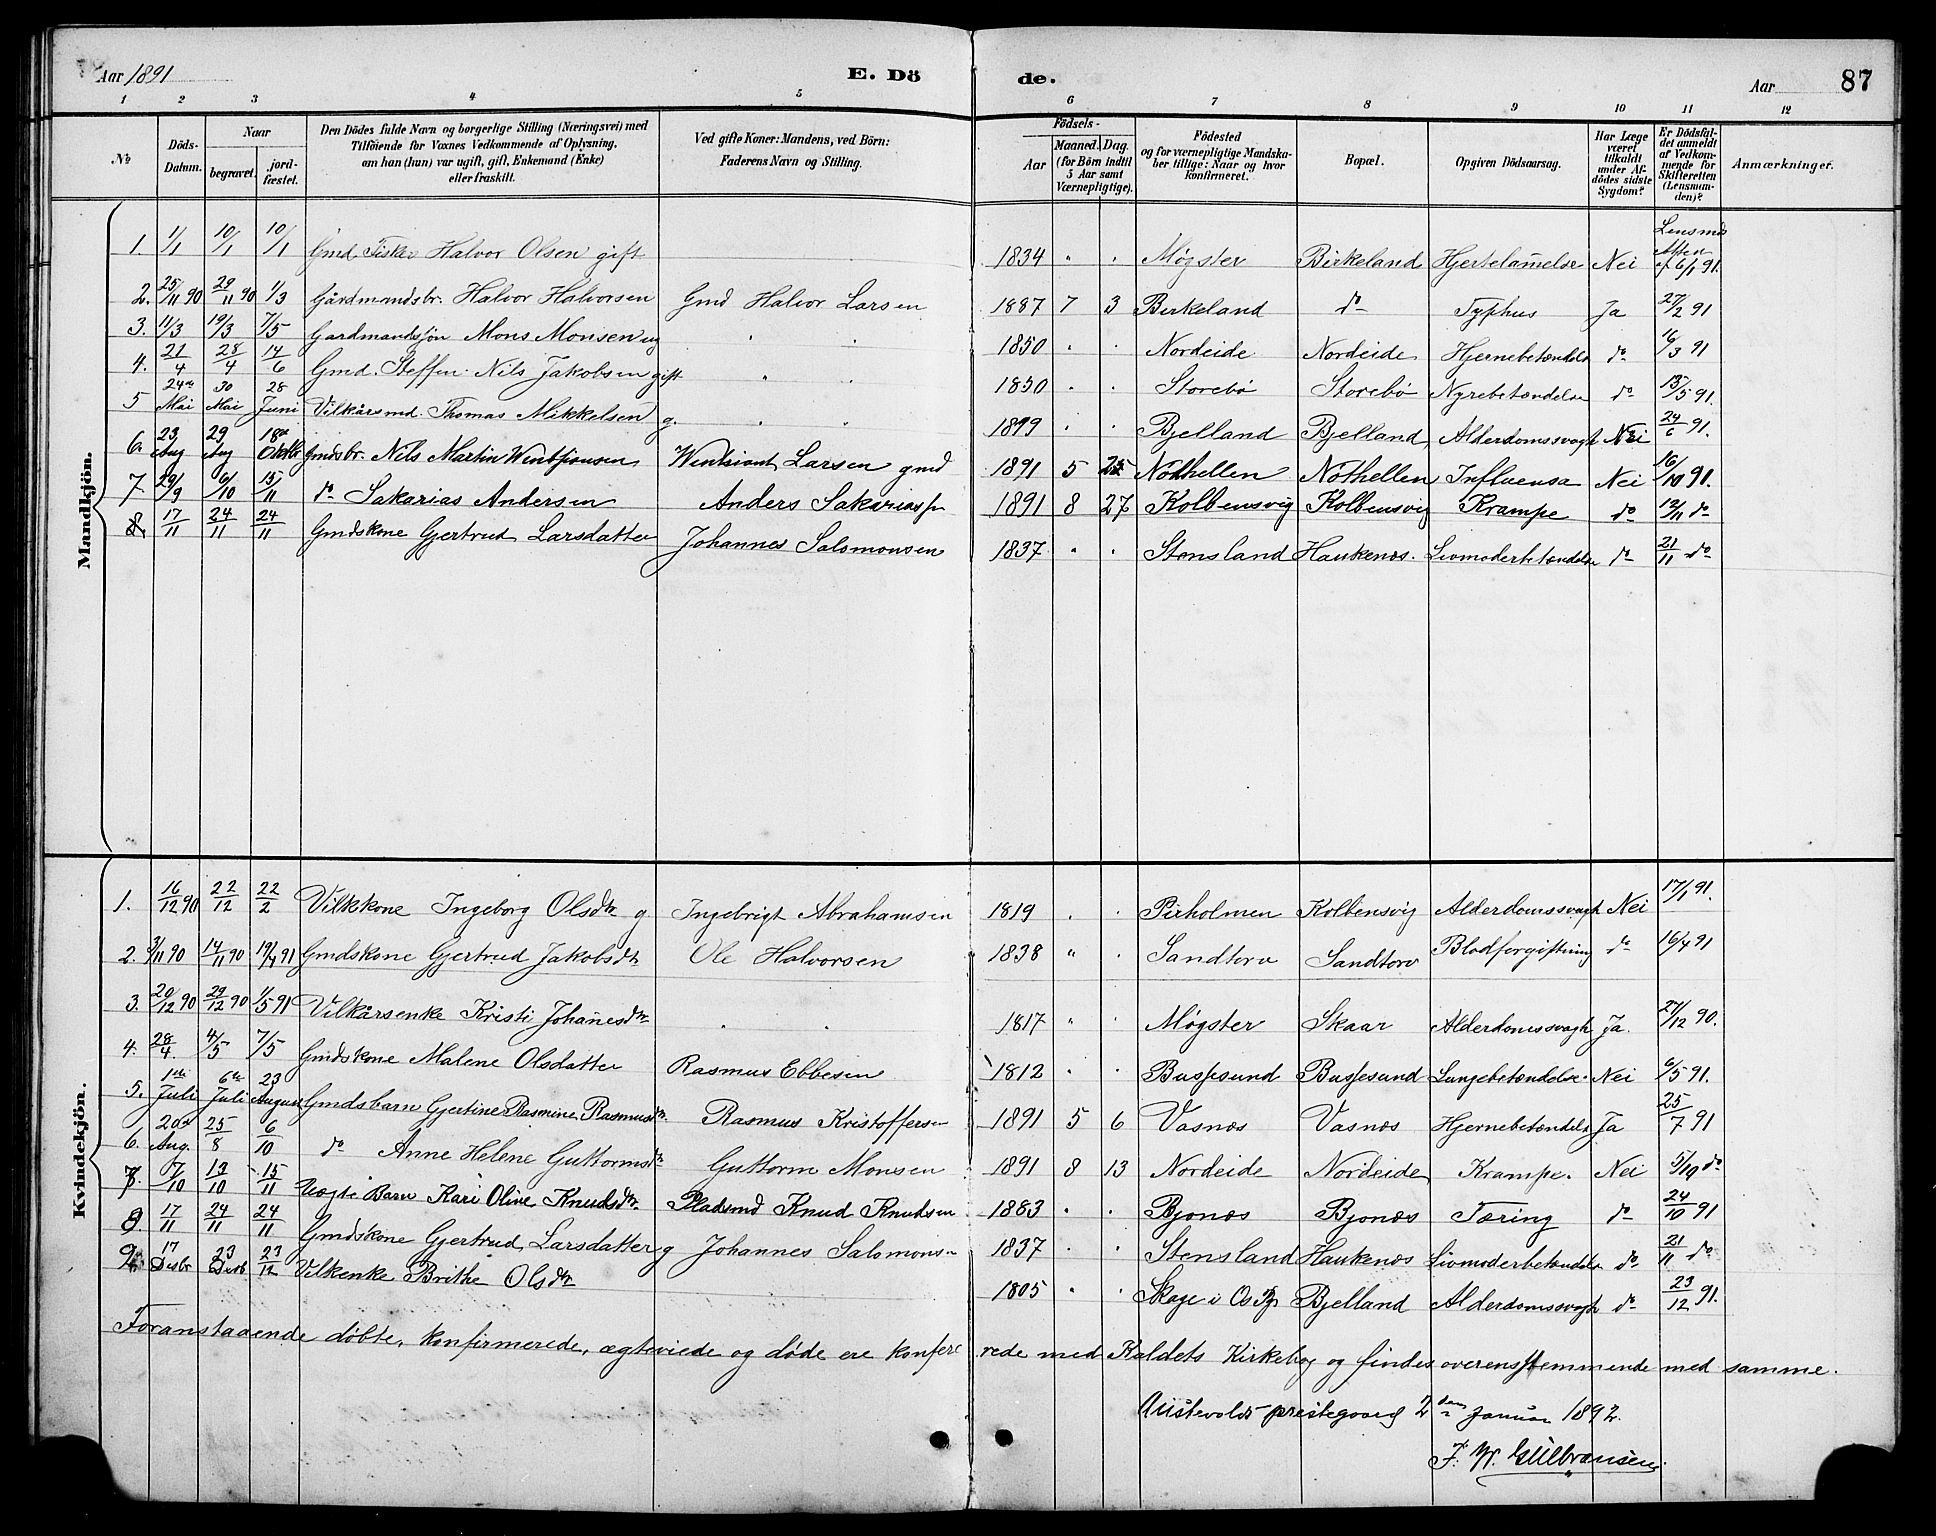 Aar 1891 E. Dö de. Aar 87
1 2 3 4 5 6 7 8 9 10 11 12
№ Döds-Datum. Naar begravet. jordfæstet. Den Dödes fulde Navn og borgerlige Stilling (Næringsvei) med Tilföiende for Voxnes Vedkommende af Oplysning, om han (hun) var ugift, gift, Enkemand (Enke) eller fraskilt. Ved gifte Koner: Mandens, ved Börn: Faderens Navn og Stilling. Födsels- Aar Maaned. Dag. (for Börn indtil 5 Aar samt Værnepligtige). Födested og for værnepligtige Mandskaber tillige: Naar og hvor konfirmeret. Bopæl. Opgiven Dödsaarsag. Har Læge været tilkaldt under Afdödes sidste Sygdom? Er Dödsfaldet anmeldt af Vedkommende for Skifteretten (Lensmanden)? Anmærkninger.
Mandkjön.
1. 1/1 10/1 10/1 Gmd. Fisker Halvor Olsen gift 1834 " " Møgster Birkeland Hjertelamelse Nei 6/1 91.
2. 25/11 90 29/11 90 1/3 Gårdmandsbr. Halvor Halvorsen Gmd Halvor Larsen 1887 7 3 Birkeland do Typhus Ja 27/2 91
3. 11/3 19/3 7/5 Gardmandssøn Mons Monsen ug " " 1850 " " Nordeide Nordeide Hjernebetændelse do 16/3 91
4. 21/4 28/4 14/6 Gmd. Steffen Nils Jakobsen gift " " 1850 " " Storebø Storebø Nyrebetændelse do 13/5 91.
5 24de Mai 30 Mai 28 Juni Vilkårsmd. Thomas Mikkelsen g. " " " " Bjelland Bjelland Alderdomssvagh Nei 24/6 91.
6. 23 Aug 29 Aug 18de Oktbr Gmdsbr. Nils Martin Larsen gmd 1891 5 25 Nothellen Nothellen Influensa Nei 16/10 91.
7 29/9 6/10 15/11 do Sakarias Andersen Anders Sakariass 1891 8 27 Kolbensvig Kolbensvig Krampe do 12/11 do
8 17/11 24/11 24/11 Gmdskone Gjertrud Larsdatter Johannes Salomonsen 1837 " " Stensland Haukenæs. Livmoderbetændelse do 21/11 do
Kvindekjön.
1. 16/12 90 22/12 22/2 Vilkkone Ingeborg Olsdtr g Ingebrigt Abrahamsen 1819 " " Pirholmen Kolbensvig Alderdomssvagh Nei 17/1 91.
2. 3/11 90 14/11 90 19/4 91 Gmdskone Gjertrud Jakobsdtr Ole Halvorsen 1838 " " Sandtorv Sandtorv Blodforgiftning do 16/4 91
3. 20/12 90 29/12 90 1/5 91 Vilkårsenke Kristi Johanesdtr " " 1817 " " Møgster Skaar Alderdomssvagh Ja 27/12 90.
4. 28/4. 4/5 7/5 Gmdskone Malene Olsdatter Rasmus Ebbesen 1812 " " Bussesund Bussesund Lungebetændelse. Nei 6/5 91.
5. 1ste Juli 6te Juli 23 August Gmdsbarn Gjertine Rasmine Rasmusdtr. Rasmus Kristoffersen 1891 5 6 Vasnæs Vasnæs Hjernebetændelse Ja 25/7 91
6. 20de Aug. 25/8 6/10 do Anne Helene Guttormsdtr Guttorm Monsen 1891 8 13 Nordeide Nordeide Krampe. Nei 5/10 do
7. 7/10 13/10 15/11 Uægte Barn Kari Oline Knudsdtr. Pladsmd Knud Knudsen 1883 " " Bjonæs Bjonæs Tæring do 24/10 91
8. 17/11 24/11 24/11 Gmdskone Gjertrud Larsdatter g Johannes Salomons 1837 " " Stensland Haukenæs Livmoderbetændelse do 21/11 do
9 17 Desbr 23 Desb 23/12 Vilkenke Brithe Olsdtr 1805 " " Skage i Os Pgj Bjelland Alderdomssvagh do 23/12 91.
Foranstaaende døbte, konfirmerede, ægteviede og døde ere konfererede med Kaldets Kirkebog og findes overensstemmende med samme.
Austevolds prestegaard 2den Januar 1892.
F. W. Gulbransen.